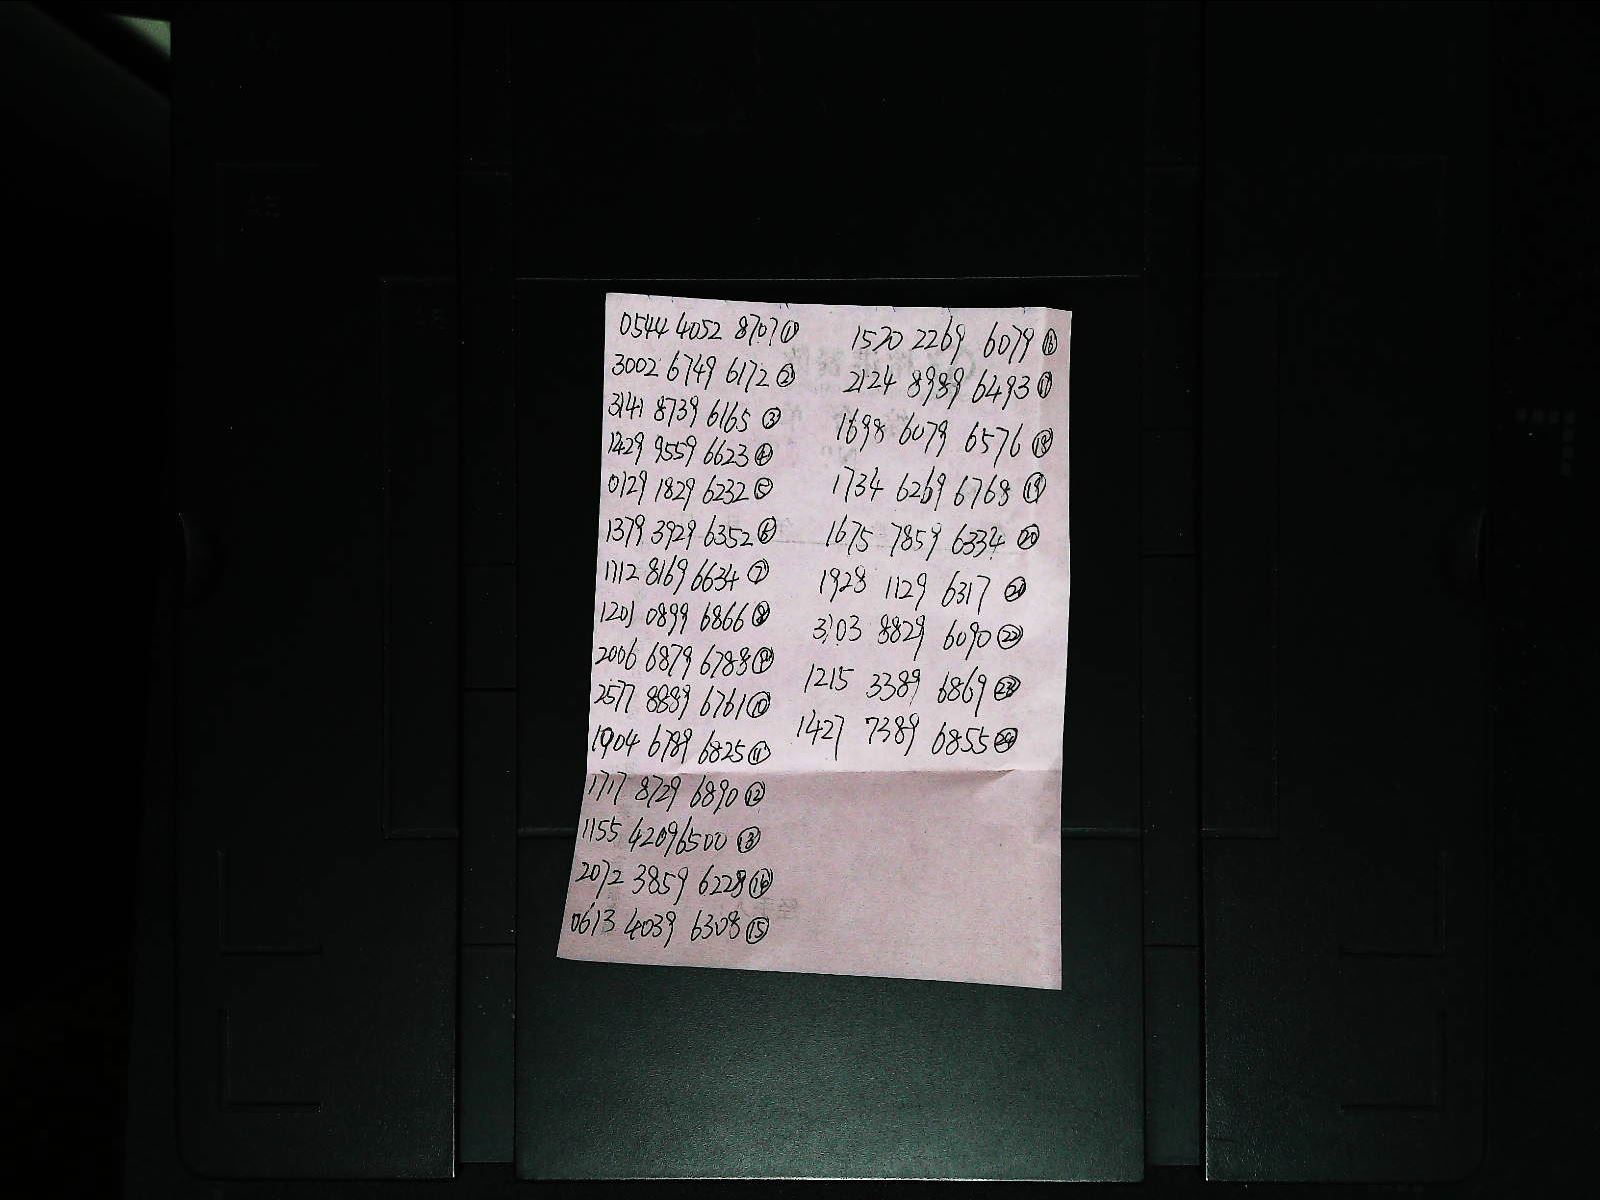 0544 4052 8707 ①
3002 6749 6172 ②
3141 8739 6165 ③
1429 9559 6623 ④
0129 1829 6232 ⑤
1379 3929 6352 ⑥
1712 8169 6634 ⑦
1201 0899 6866 ⑧
2006 6879 6788 ⑨
2577 8889 6761 ⑩
1904 6789 6825 ⑪
1717 8729 6890 ⑫
1155 4209 6500 ⑬
2072 3859 6228 ⑭
0613 4039 6308 ⑮
1570 2269 6079 ⑯
2124 8989 6493 ⑰
1698 6079 6576 ⑱
1734 6269 6768 ⑲
1675 7859 6334 ⑳
1928 1129 6317 ㉑
3103 8829 6090 ㉒
1215 3389 6869 ㉓
1427 7389 6855 ㉔